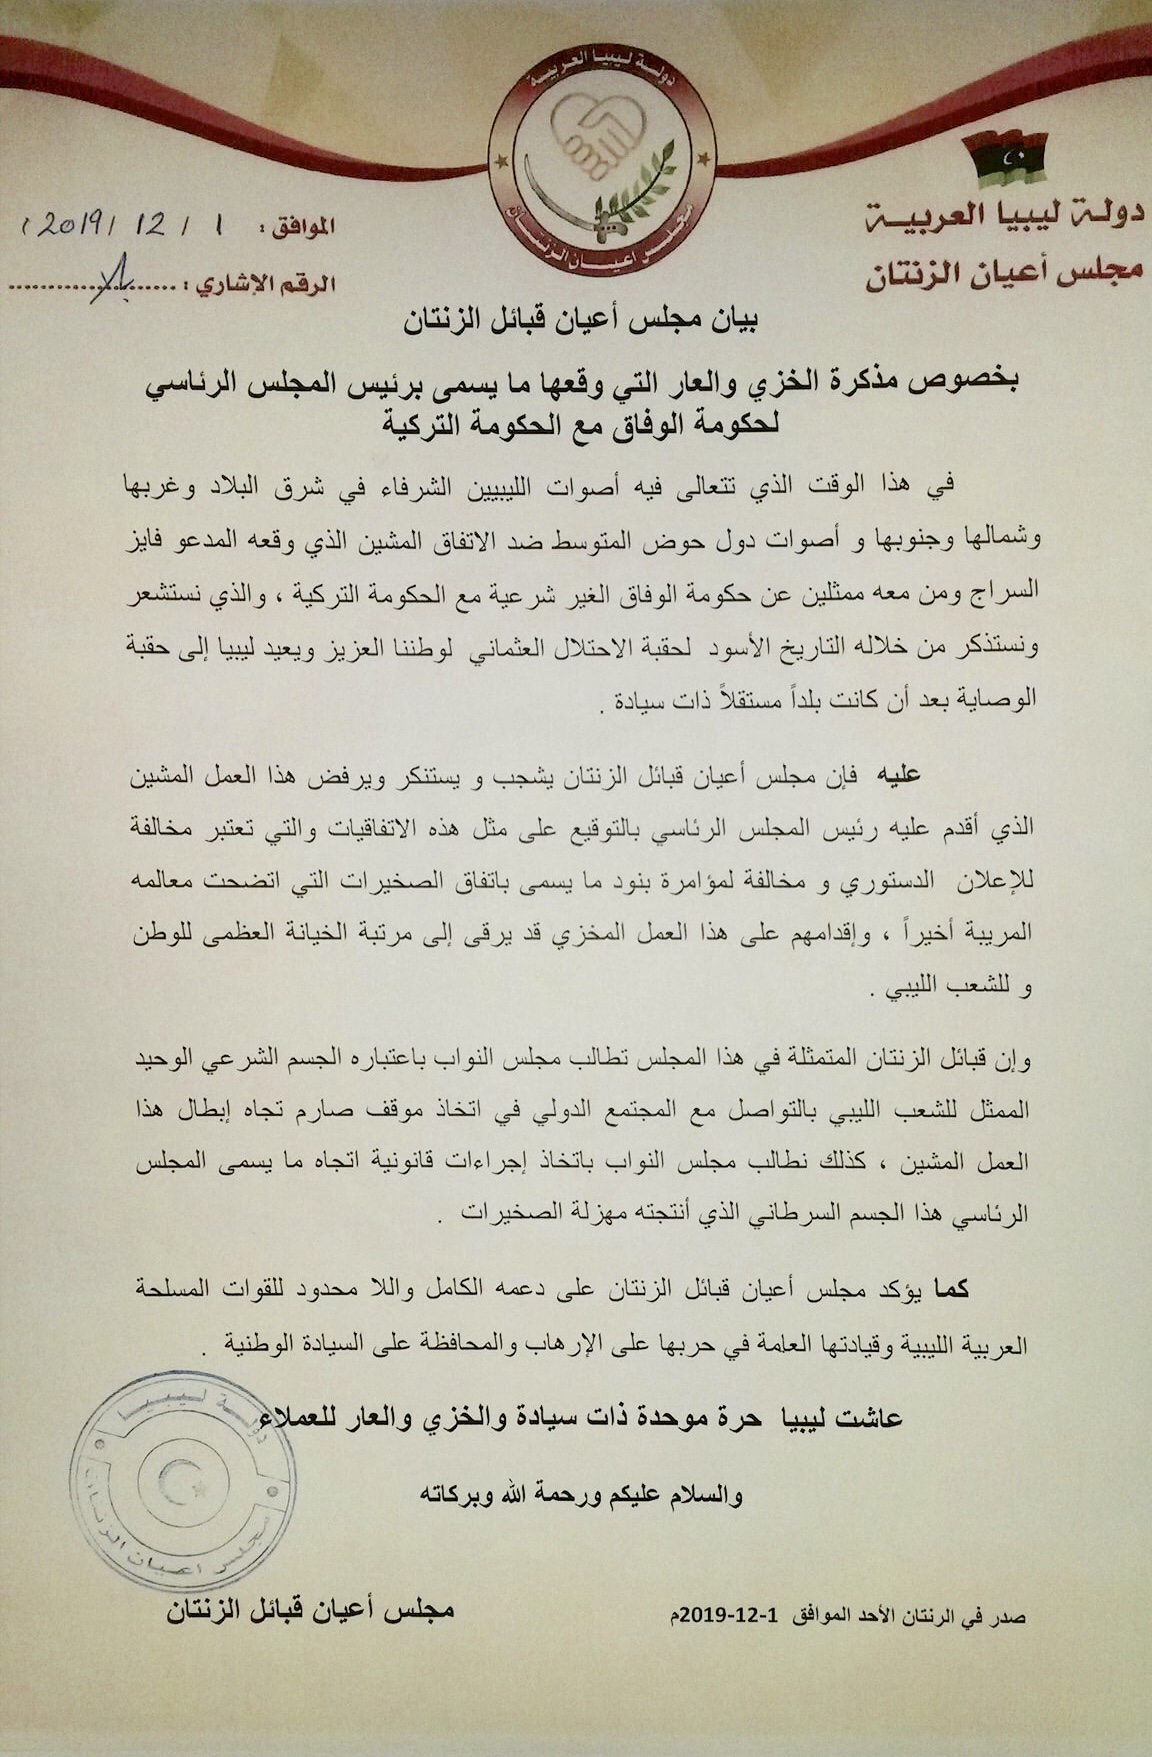 دولة ليبيا العربية
مجلس اعيان الزنتان
دولة ليبيا العربية
مجلس أعيان الزنتان
الموافق : 1 / 12 / 2019 /
الرقم الإشاري : بلا
بيان مجلس أعيان قبائل الزنتان
بخصوص مذكرة الخزي والعار التي وقعها ما يسمى برئيس المجلس الرئاسي
لحكومة الوفاق مع الحكومة التركية
في هذا الوقت الذي تتعالى فيه أصوات الليبيين الشرفاء في شرق البلاد وغربها
وشمالها وجنوبها و أصوات دول حوض المتوسط ضد الاتفاق المشين الذي وقعه المدعو فايز
السراج ومن معه ممثلين عن حكومة الوفاق الغير شرعية مع الحكومة التركية ، والذي نستشعر
ونستذكر من خلاله التاريخ الأسود لحقبة الاحتلال العثماني لوطننا العزيز ويعيد ليبيا إلى حقبة
الوصاية بعد أن كانت بلداً مستقلاً ذات سيادة .
عليه فإن مجلس أعيان قبائل الزنتان يشجب و يستنكر ويرفض هذا العمل المشين
الذي أقدم عليه رئيس المجلس الرئاسي بالتوقيع على مثل هذه الاتفاقيات والتي تعتبر مخالفة
للإعلان الدستوري و مخالفة لمؤامرة بنود ما يسمى باتفاق الصخيرات التي اتضحت معالمه
المريبة أخيراً ، وإقدامهم على هذا العمل المخزي قد يرقى إلى مرتبة الخيانة العظمى للوطن
و للشعب الليبي .
وإن قبائل الزنتان المتمثلة في هذا المجلس تطالب مجلس النواب باعتباره الجسم الشرعي الوحيد
الممثل للشعب الليبي بالتواصل مع المجتمع الدولي في اتخاذ موقف صارم تجاه إبطال هذا
العمل المشين ، كذلك نطالب مجلس النواب باتخاذ إجراءات قانونية اتجاه ما يسمى المجلس
الرئاسي هذا الجسم السرطاني الذي أنتجته مهزلة الصخيرات .
كما يؤكد مجلس أعيان قبائل الزنتان على دعمه الكامل واللا محدود للقوات المسلحة
العربية الليبية وقيادتها العامة في حربها على الإرهاب والمحافظة على السيادة الوطنية .
عاشت ليبيا حرة موحدة ذات سيادة والخزي والعار للعملاء
والسلام عليكم ورحمة الله وبركاته
دولة ليبيا
مجلس اعيان الزنتان
صدر في الرنتان الأحد الموافق 1-12-2019م
مجلس أعيان قبائل الزنتان